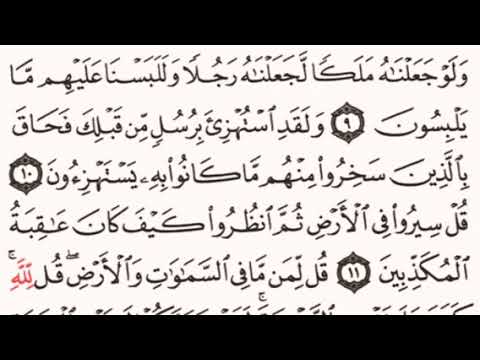 وَلَوْ جَعَلْنَٰهُ مَلَكًا لَّجَعَلْنَٰهُ رَجُلًا وَلَلَبَسْنَا عَلَيْهِم مَّا
يَلْبِسُونَ ٩ وَلَقَدِ ٱسْتُهْزِئَ بِرُسُلٍ مِّن قَبْلِكَ فَحَاقَ
بِٱلَّذِينَ سَخِرُوا۟ مِنْهُم مَّا كَانُوا۟ بِهِۦ يَسْتَهْزِءُونَ ١٠
قُلْ سِيرُوا۟ فِى ٱلْأَرْضِ ثُمَّ ٱنظُرُوا۟ كَيْفَ كَانَ عَٰقِبَةُ
ٱلْمُكَذِّبِينَ ١١ قُل لِّمَن مَّا فِى ٱلسَّمَٰوَٰتِ وَٱلْأَرْضِ ۖ قُل لِّلَّهِ ۚ